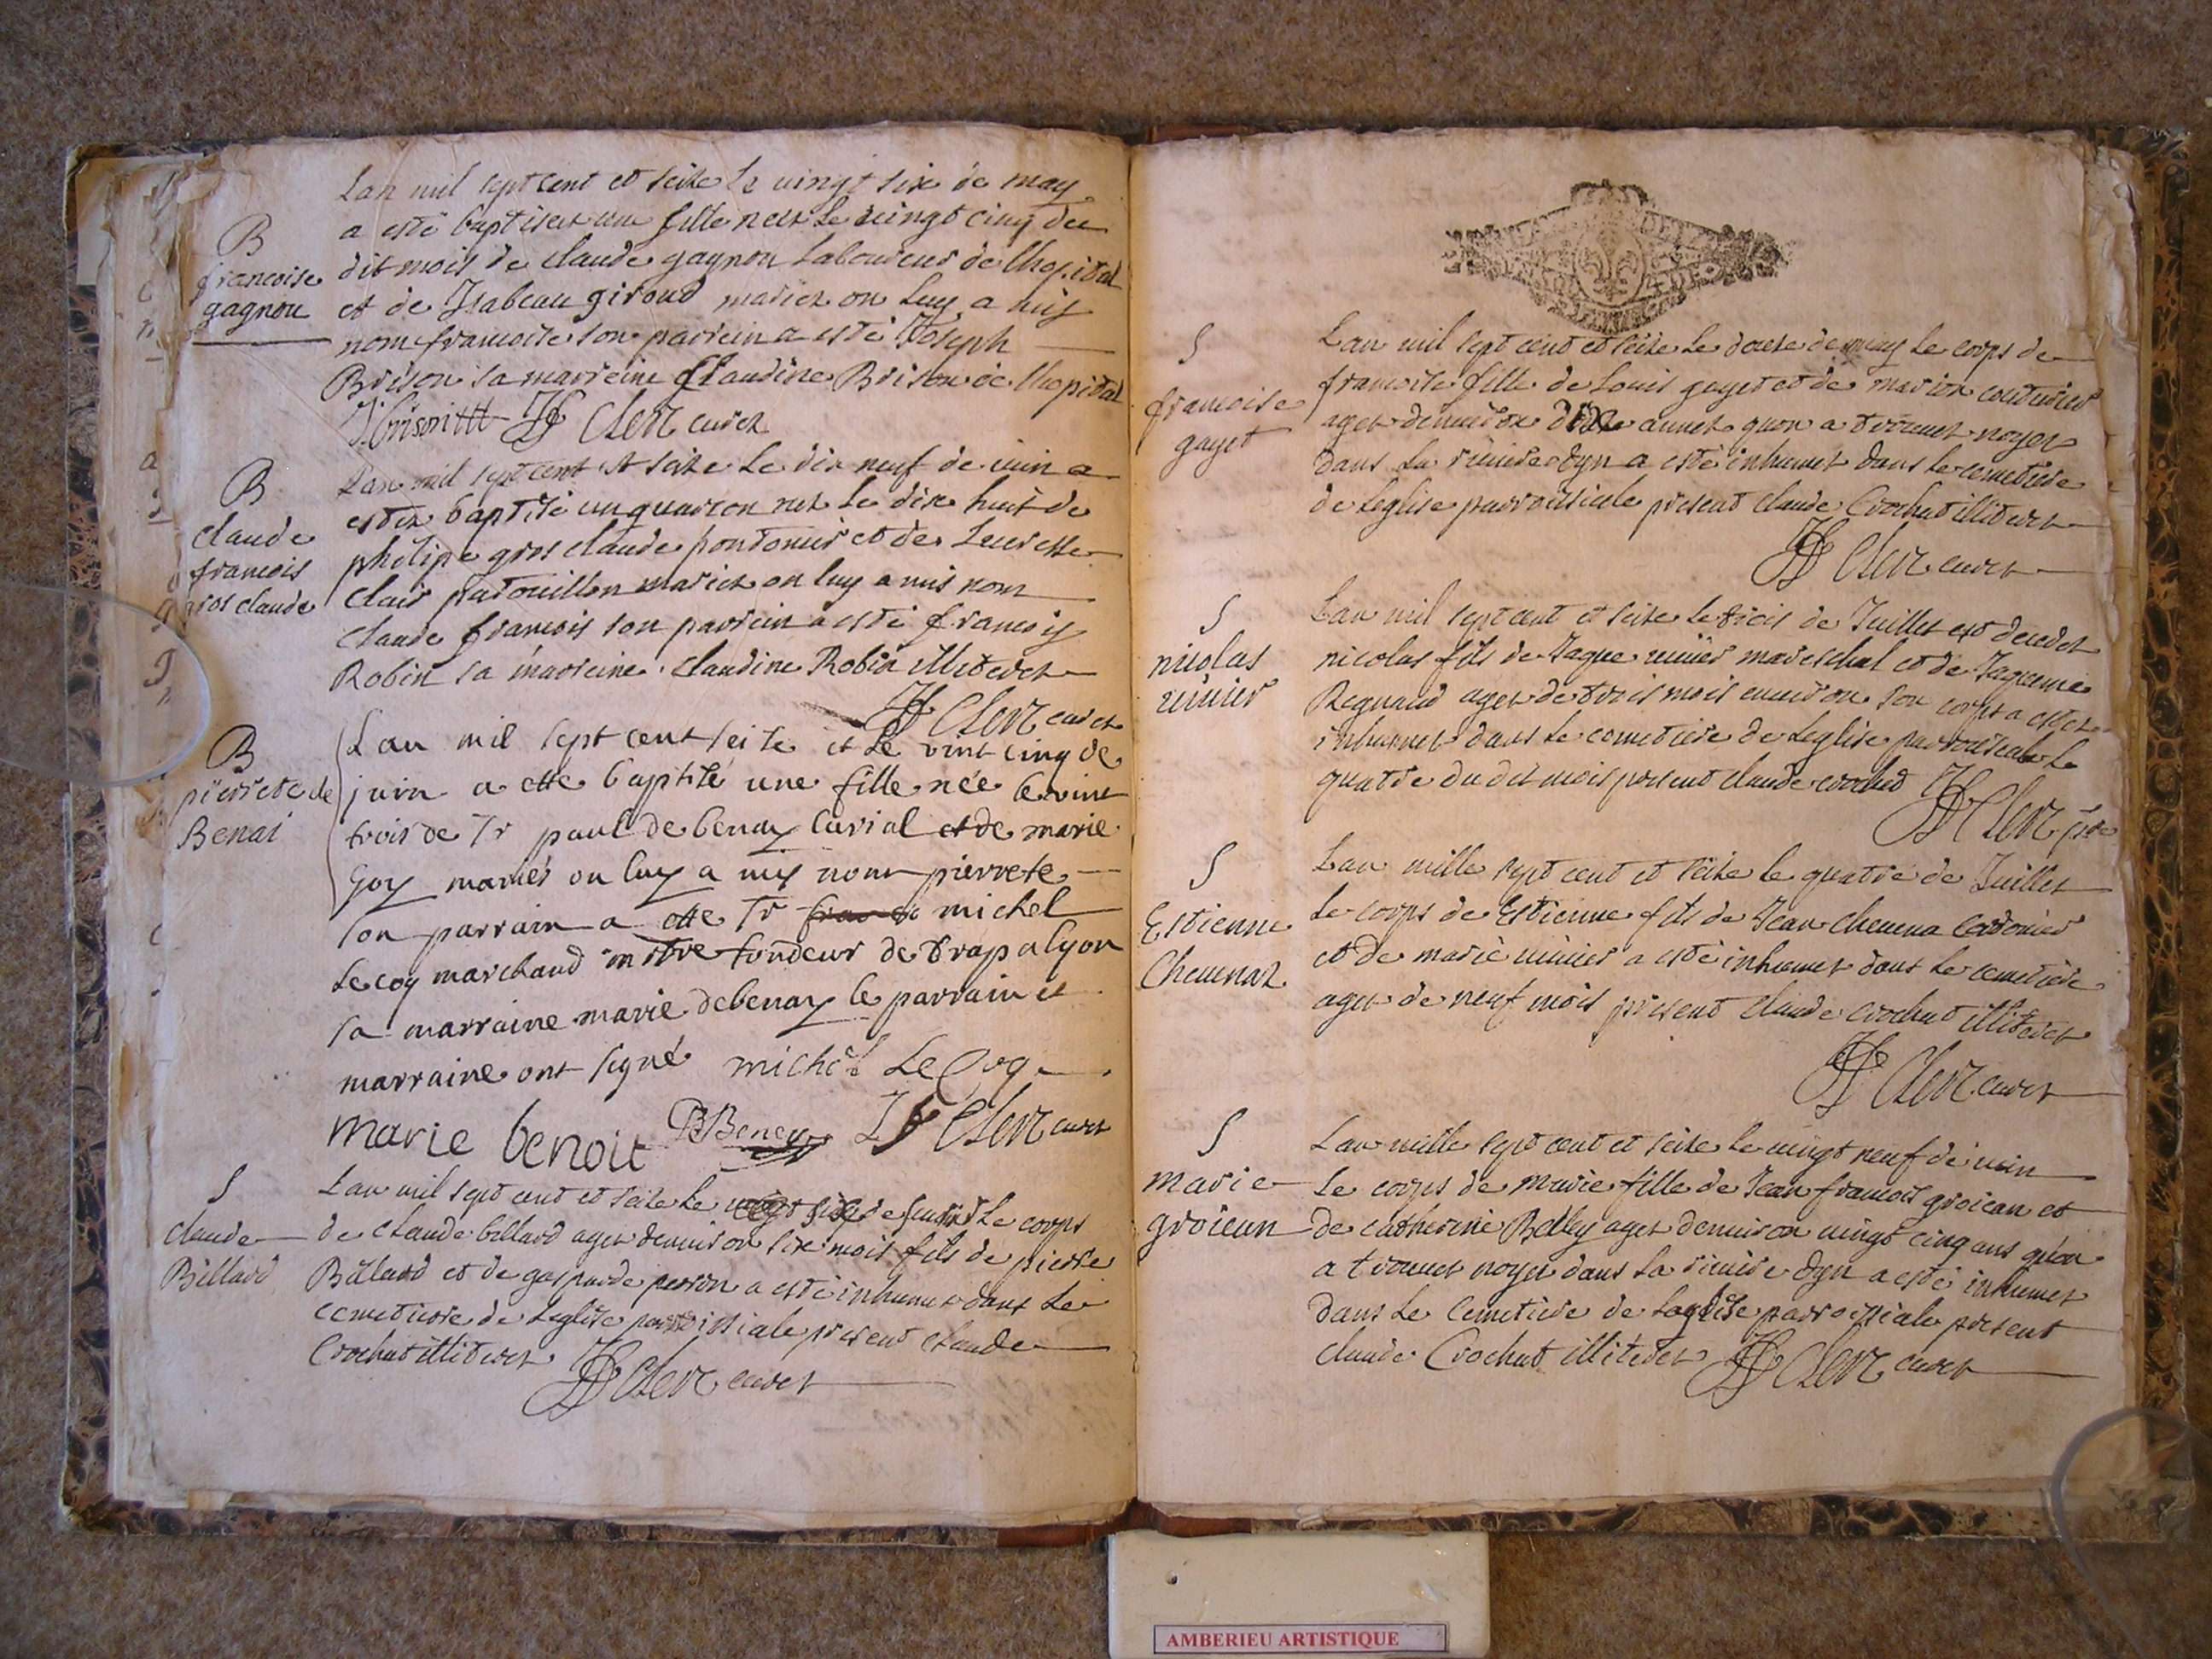 Lan mil sept cent et seize le vingt sixe de may
a esté baptiset une fille neet le vingt cinq du
dit mois de claude gagnon Laboureur de lhopital
et de Isabeau giroud mariez on luy a mis
nom francoise son parrein a esté Joseph
Brison sa marreine Claudine Brison de lhopital
J. brison JF Clerc curez
B
francoise
gagnon
Lan mil sept cent et seize le dix neuf de iuin a
estez baptisé un guarcon nez le dixe huit de
phelipe gros claude pontonier et de
Clair patouillon mariez on luy a mis nom
claude francois son parrein a esté francois
Robin sa marreine claudine Robin illiterez
JF Clerc curez
B
claude
francois
gros claude
Lan mil sept cent seize et le vint cinq de
juin a etté baptisé une fille née le vint
trois de Sr paul de benay curial et de marie
Goy mariés on luy a mis nom pierrete
son parrain a etté Sr michel
Lecoq marchand maitre tondeur de drap a lyon
sa marraine marie debenay le parrain et
marraine ont signé michel Le Coq
marie benoit JF Clerc curez
B
pierrete de
Benai
Lan mil sept cent et seize le le corps
de claude billard aget denuiron sixe mois fils de pierre
Billard et de gasparde perron a esté inhumet dans le
cemetiere de Leglise parroissiale present claude
Crochut illiterez JF Clerc curez
S
claude
Billard
Lan mil sept cent et seize le douze de may le corps de
francoise fille de Louis gayet et de marion couturier
aget denuiron dixe annet quon a trouuet noyez
dans la riuiere dyn a esté inhumet dans le cemetiere
de leglise parroissiale present claude Crochut illiterez
JF Clerc curez
S
francoise
gayet
Lan mil sept cent et seize le trois de Juillet est decedet
nicolas fils de Jaque uiuier mareschal et de Jaqueme
Regnaud aget de trois mois enuiron son corps a estez
inhumet dans le cemetiere de Leglise parroissiale le
quatre du dit mois present claude crochut
JF Clerc ptre
S
nicolas
uiuier
Lan mille sept cent et seize le quatre de Juillet
Le corps de Estienne fils de Jean Cheuena cordonier
et de marie uiuier a esté inhumet dans le cemetiere
aget de neuf mois present claude crochut illiterez
JF Clerc curez
S
Estienne
Cheuenaz
Lan mille sept cent et seize le uingt neuf de iuin
Le corps de marie fille de Jean francois groiean et
de catherine Belley aget denuiron uingt cinq ans qu'on
a trouuet noyez dans la riuiere dyn a esté inhumet
dans le Cemetiere de leglise parroissiale present
claude Crochut illiterez JF Clerc curez
S
marie
groiean
AMBERIEU ARTISTIQUE